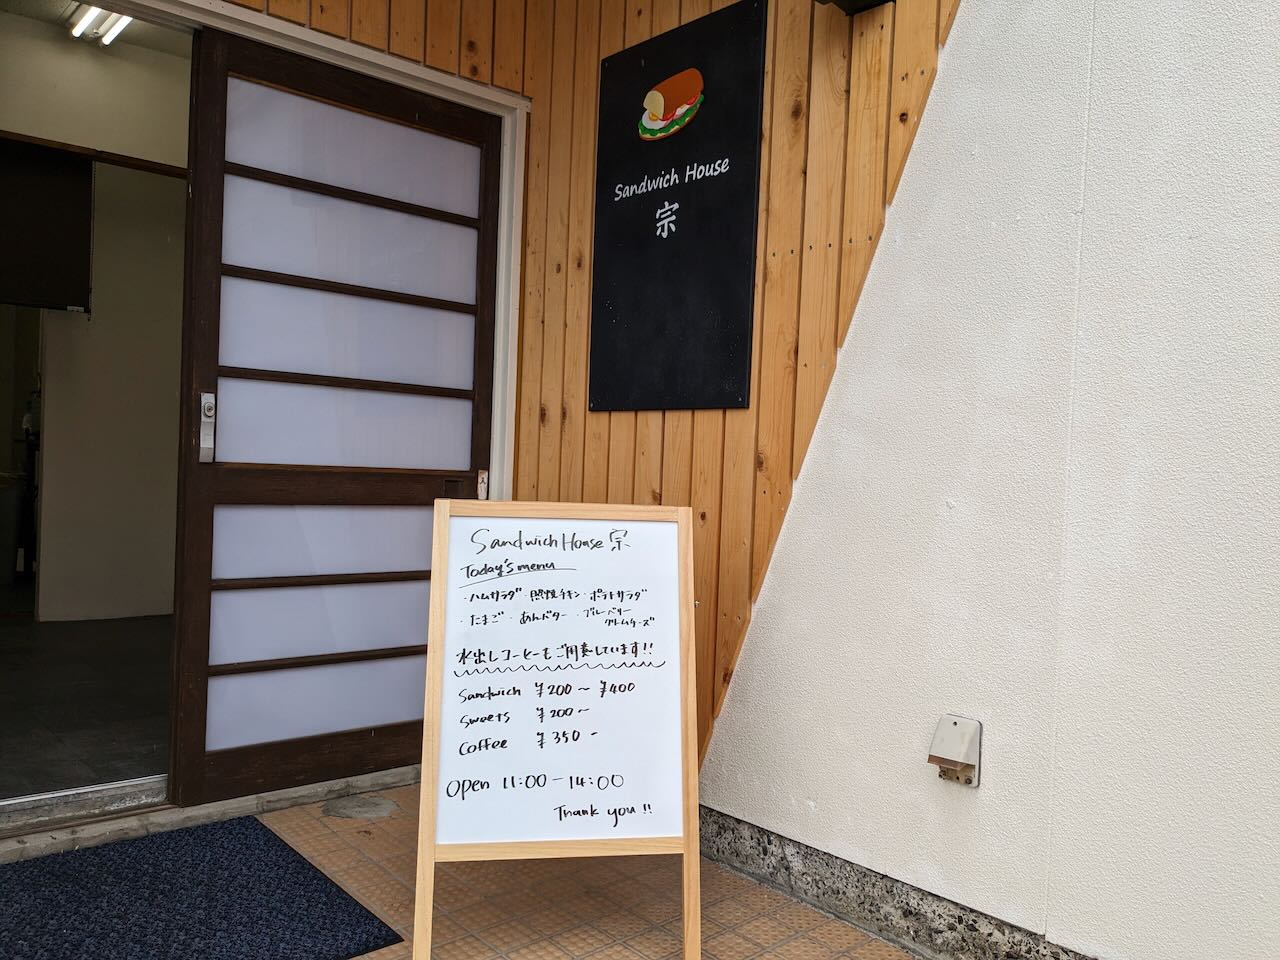 Sandwich House
宗
Sandwich House 宗
Today's menu
・ハムサラダ ・照焼チキン ・ポテトサラダ
・たまご ・あんバター ・ブルーベリー
クリームチーズ
水出しコーヒーもご用意しています!!
Sandwich ¥200〜¥400
Sweets ¥200〜
Coffee ¥350-
Open 11:00-14:00
Thank you!!